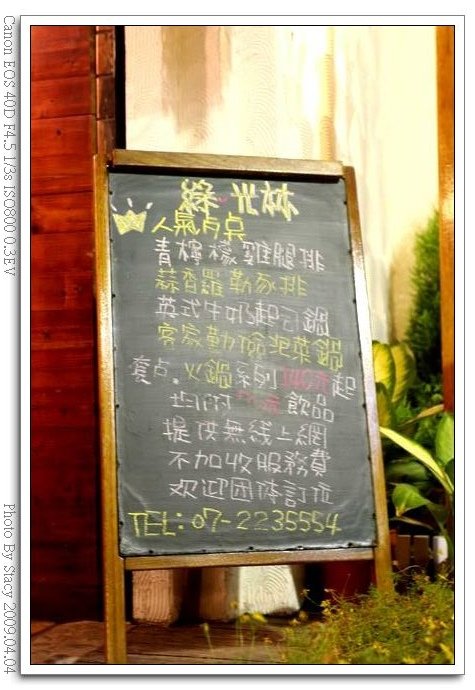 Canon EOS 40D F4.5 1/3s ISO800 0.3EV
綠光林
人氣月点
青檸檬雞腿排
蒜香羅勒豕排
英式牛奶起司鍋
客家泡菜鍋
套点.火鍋系列起
均附飲品
提供無線上網
不加收服務費
欢迎团体訂位
TEL:07-2235554
Photo By Stacy 2009.04.04